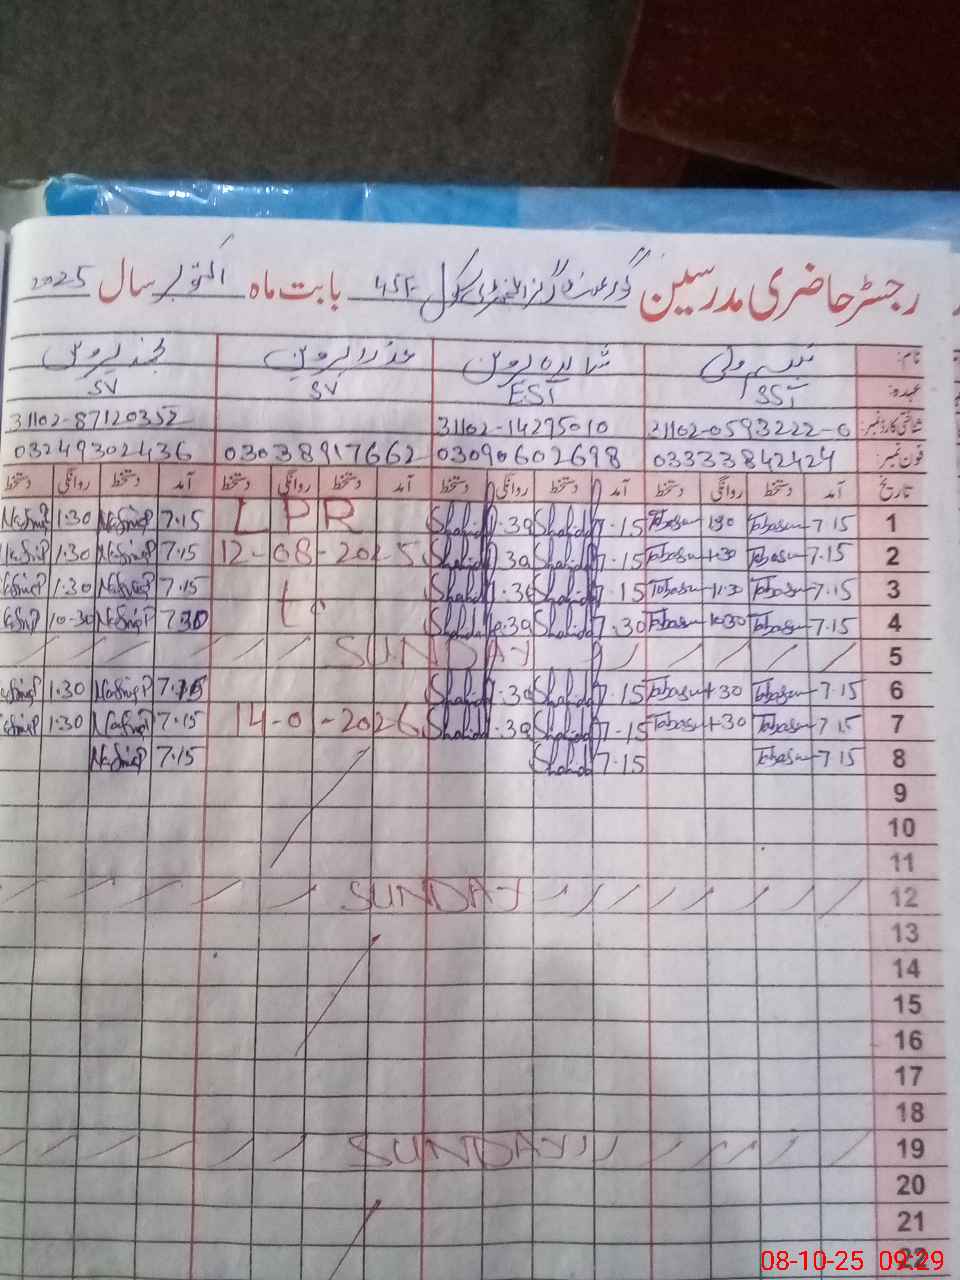 رجسٹر حاضری مدرسین گورنمنٹ گرلز ایلیمنٹری سکول 45F بابت ماہ اکتوبر سال 2025
نام: شاہدہ پروین عذرا پروین
عہدہ: SST EST SV SV
شناختی کارڈ نمبر: 31102-0593222-0 31102-14275010 31102-87120352
فون نمبر: 03333842424 03090602698 03038917662 03249302436
تاریخ آمد دستخط روانگی دستخط آمد دستخط روانگی دستخط آمد دستخط روانگی دستخط آمد دستخط روانگی دستخط
1 7.15 Tabasum 1.30 Tabasum 7.15 Shahida 1.30 Shahida LPR 7.15 NafsingP 1.30
2 7.15 Tabasum 1.30 Tabasum 7.15 Shahida 1.30 Shahida 12-08-2025 7.15 1.30
3 7.15 Tabasum 1.30 Tabasum 7.15 Shahida 1.30 Shahida to 7.15 1.30
4 7.15 Tabasum 10.30 Tabasum 7.30 Shahida 10.30 Shahida 7.30 10-30
5 SUNDAY
6 7.15 Tabasum 1.30 Tabasum 7.15 Shahida 1.30 Shahida 7.15 1.30
7 7.15 Tabasum 1.30 Tabasum 7.15 Shahida 1.30 Shahida 14-01-2026 7.15 1.30
8 7.15 Tabasum 7.15 Shahida 7.15
9
10
11
12 SUNDAY
13
14
15
16
17
18
19 SUNDAY
20
21
22
08-10-25 09:29